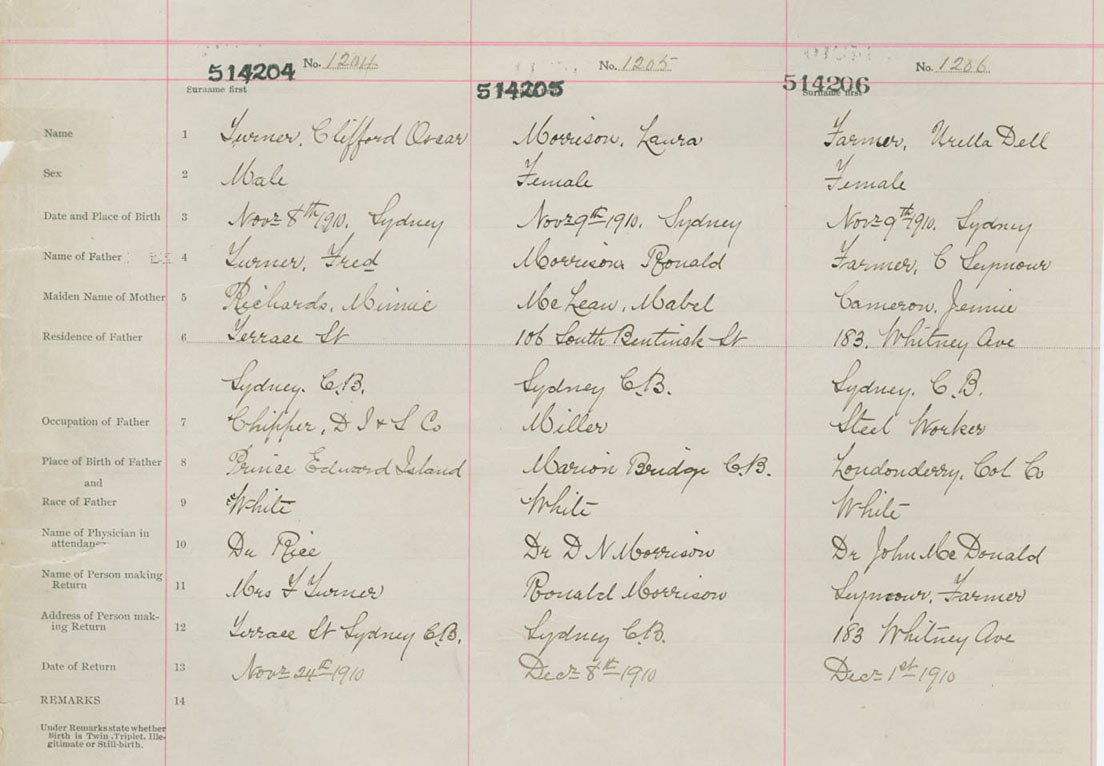 514204 No. 1204 514205 No. 1205 514206 No. 1206
Surname first Surname first
Name 1 Turner, Clifford Oscar Morrison, Laura Farmer, Urella Dell
Sex 2 Male Female Female
Date and Place of Birth 3 Novr 8th 1910. Sydney Novr 9th 1910. Sydney Novr 9th 1910. Sydney
Name of Father 4 Turner, Fred Morrison Ronald Farmer, C Seymour
Maiden Name of Mother 5 Richards, Minnie McLean, Mabel Cameron, Jennie
Residence of Father 6 Terrace St 106 South Bentinck St 183. Whitney Ave
Sydney. C.B. Sydney C.B. Sydney. C.B.
Occupation of Father 7 Chipper, D I & S Co Miller Steel Worker
Place of Birth of Father 8 Prince Edward Island Marion Bridge C.B. Londonderry, Col Co
and
Race of Father 9 White White White
Name of Physician in
attendance 10 Dr Rice Dr D N Morrison Dr John McDonald
Name of Person making
Return 11 Mrs F Turner Ronald Morrison Seymour, Farmer
Address of Person mak-
ing Return 12 Terrace St Sydney C.B. Sydney C.B. 183 Whitney Ave
Date of Return 13 Novr 24th 1910 Decr 8th 1910 Decr 1st 1910
REMARKS 14
Under Remarks state whether
Birth is Twin, Triplet, Ille-
gitimate or Still-birth.